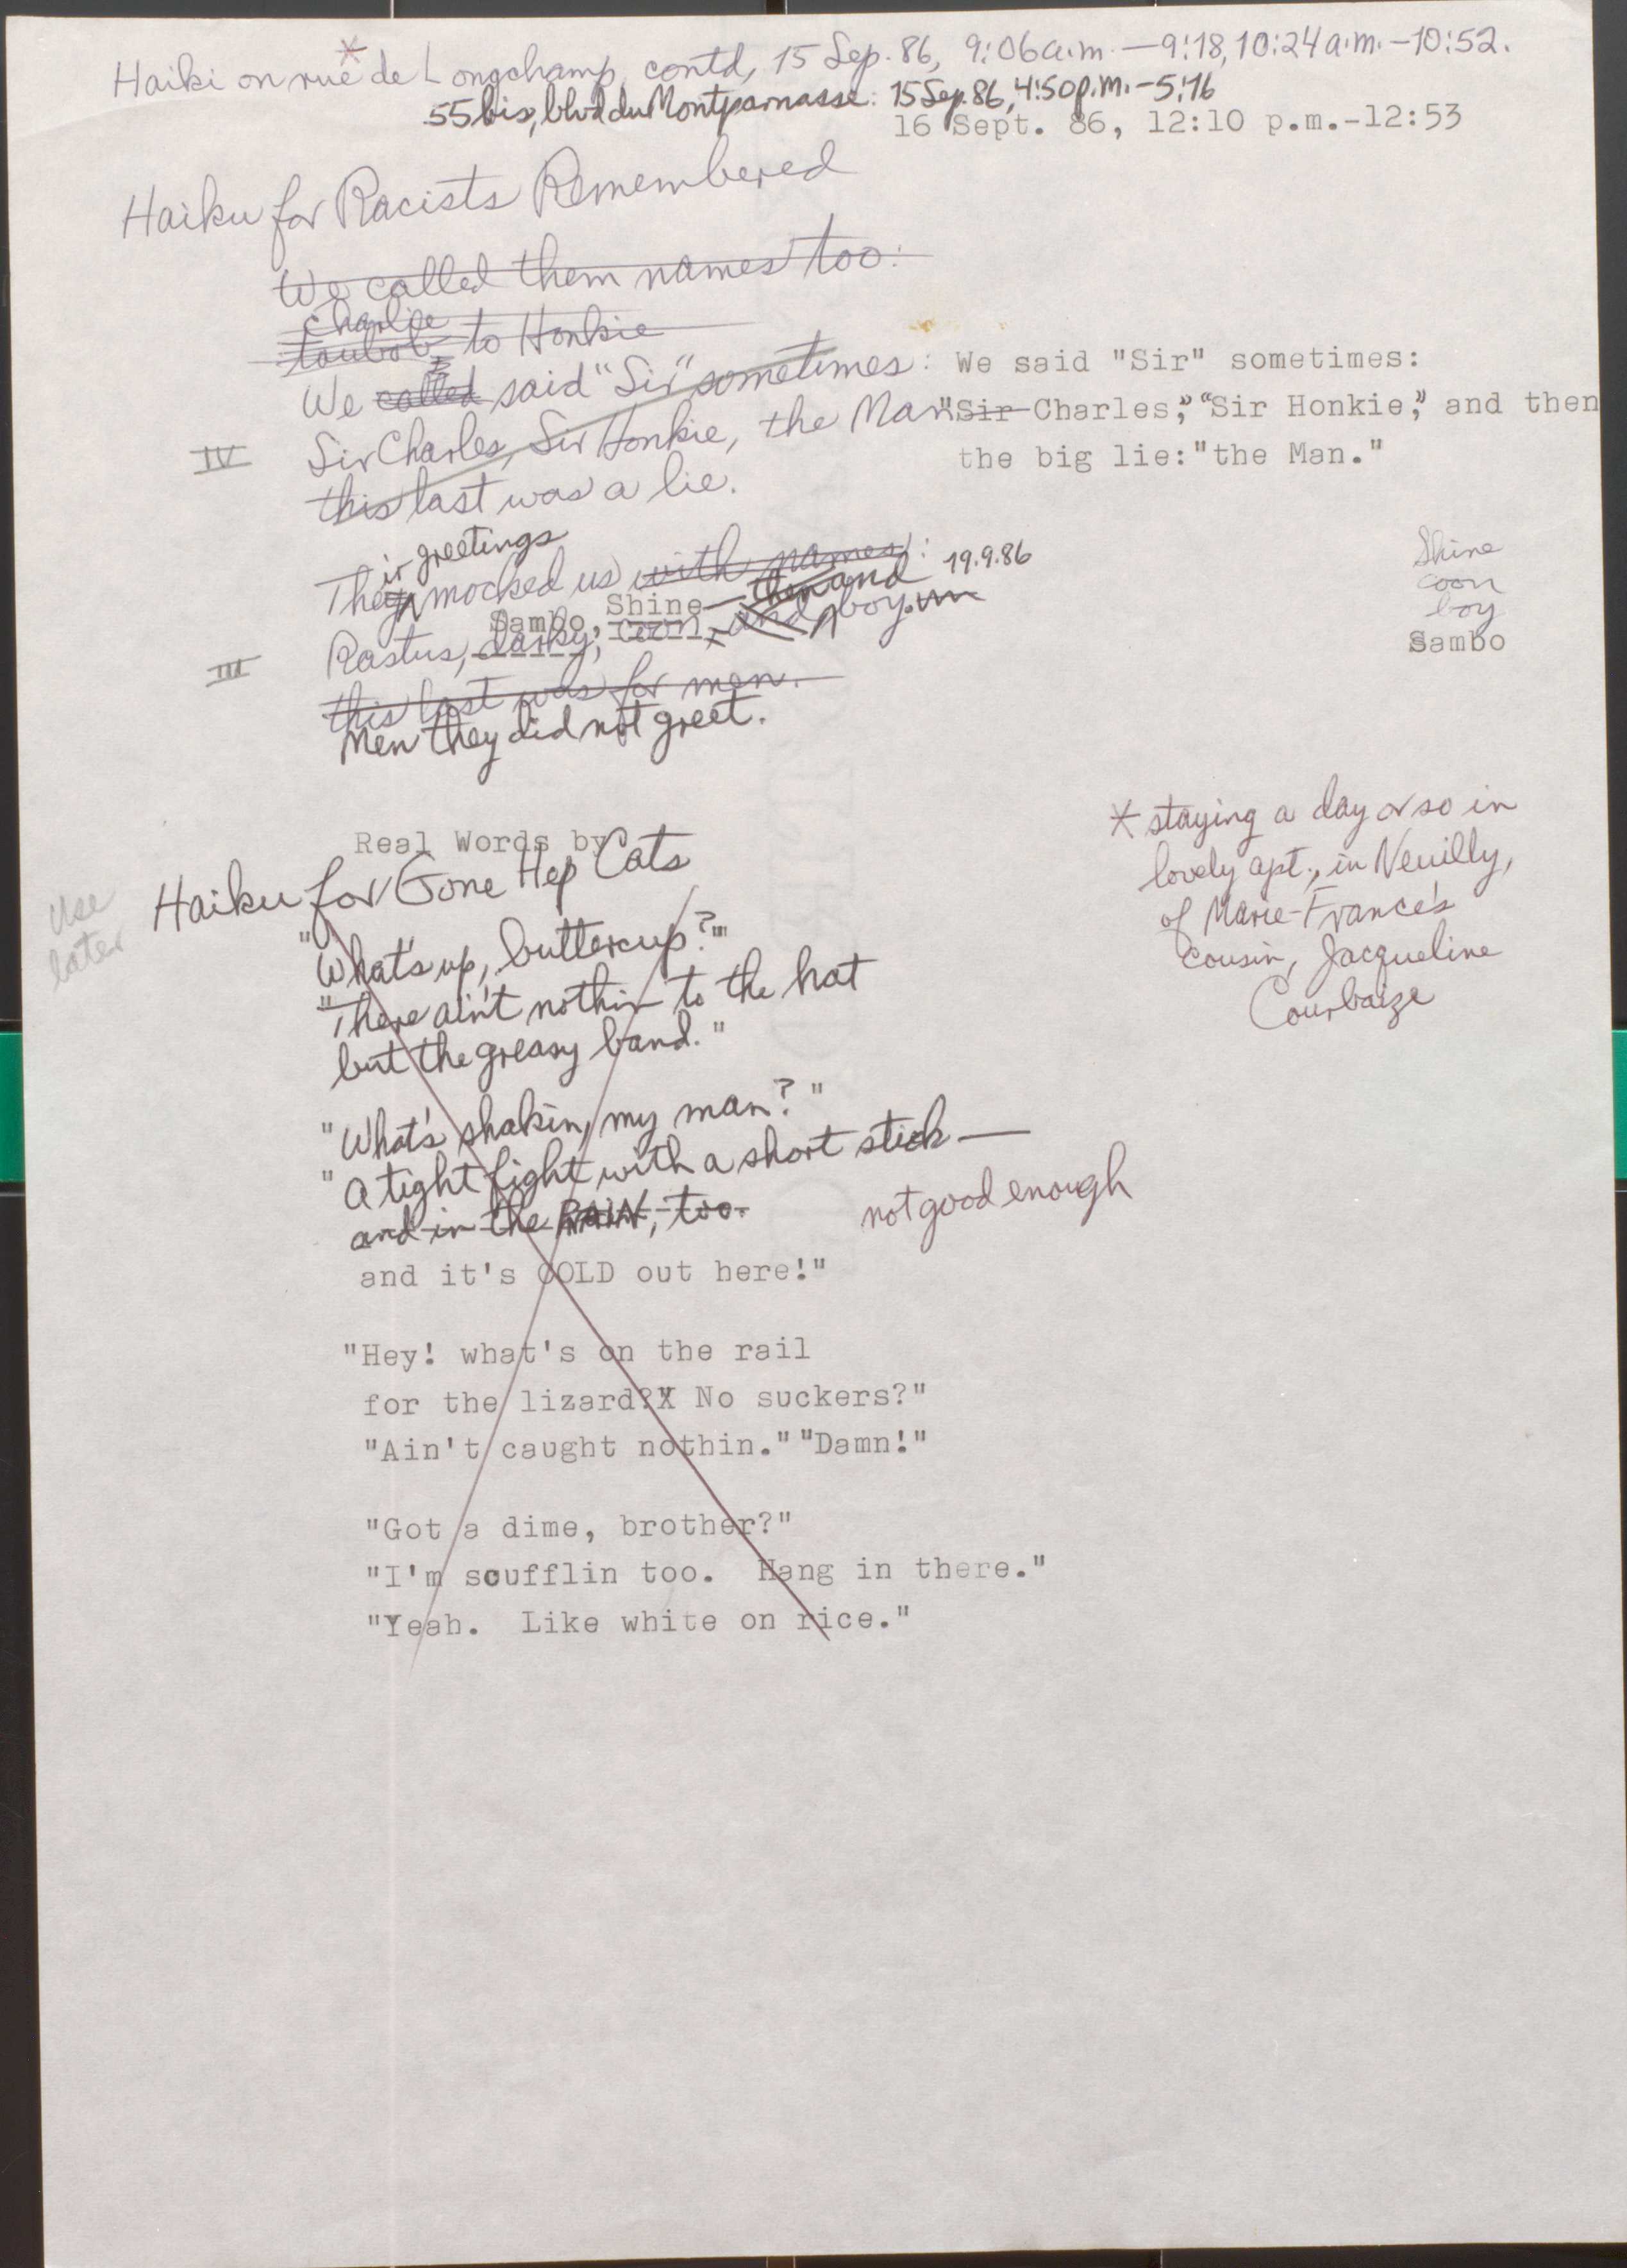 Haiki on rue* de Longchamp, contd, 15 Sep. 86, 9:06 a.m. — 9:18, 10:24 a.m. - 10:52.
55 bis, blvd du Montparnasse: 15 Sep. 86, 4:50 p.m. - 5:16
16 Sept. 86, 12:10 p.m.-12:53
Haiku for Racists Remembered
We called them names too:
Charlie
toubob to Honkie
We called said "Sir" sometimes:
Sir Charles, Sir Honkie, the Man
IV
this last was a lie.
We said "Sir" sometimes:
"Sir Charles," "Sir Honkie," and then
the big lie: "the Man."
ir greetings
They mocked us with names:
then and 19.9.86
Sambo, Shine—
Rastus, darky, coon, and boy.
III
this last was for men.
Men they did not greet.
Shine
coon
boy
Sambo
* staying a day or so in
lovely apt., in Neuilly,
of Marie-France's
cousin, Jacqueline
Courbaize
Real Words by
Haiku for Gone Hep Cats
Use
later
"What's up, buttercup?"
"There ain't nothin to the hat
but the greasy band."
"What's shakin, my man?"
"A tight fight with a short stick—
and in the RAIN, too.
not good enough
and it's COLD out here!"
"Hey! what's on the rail
for the lizard?X No suckers?"
"Ain't caught nothin." "Damn!"
"Got a dime, brother?"
"I'm scufflin too.  Hang in there."
"Yeah.  Like white on rice."